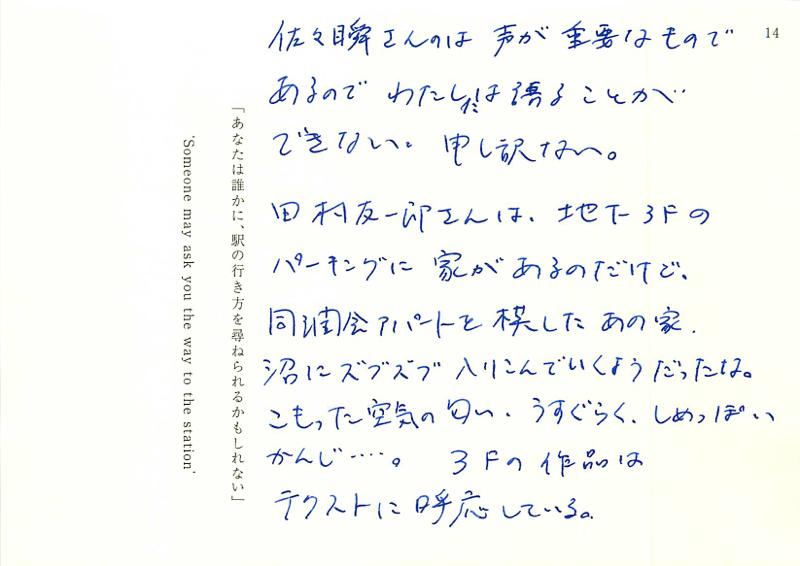 14
佐々瞬さんのは 声が 重要なもので
あるので わたしには語ることが
できない。申し訳ない。
田村友一郎さんは、地下3Fの
パーキングに 家があるのだけど、
同潤会アパートを模した あの家、
沼に ズブズブ 入りこんでいくようだったな。
こもった空気の匂い、うすぐらく、しめっぽい
かんじ‥‥。 3Fの作品は
テクストに呼応している。
「あなたは誰かに、駅の行き方を尋ねられるかもしれない」
'Someone may ask you the way to the station'